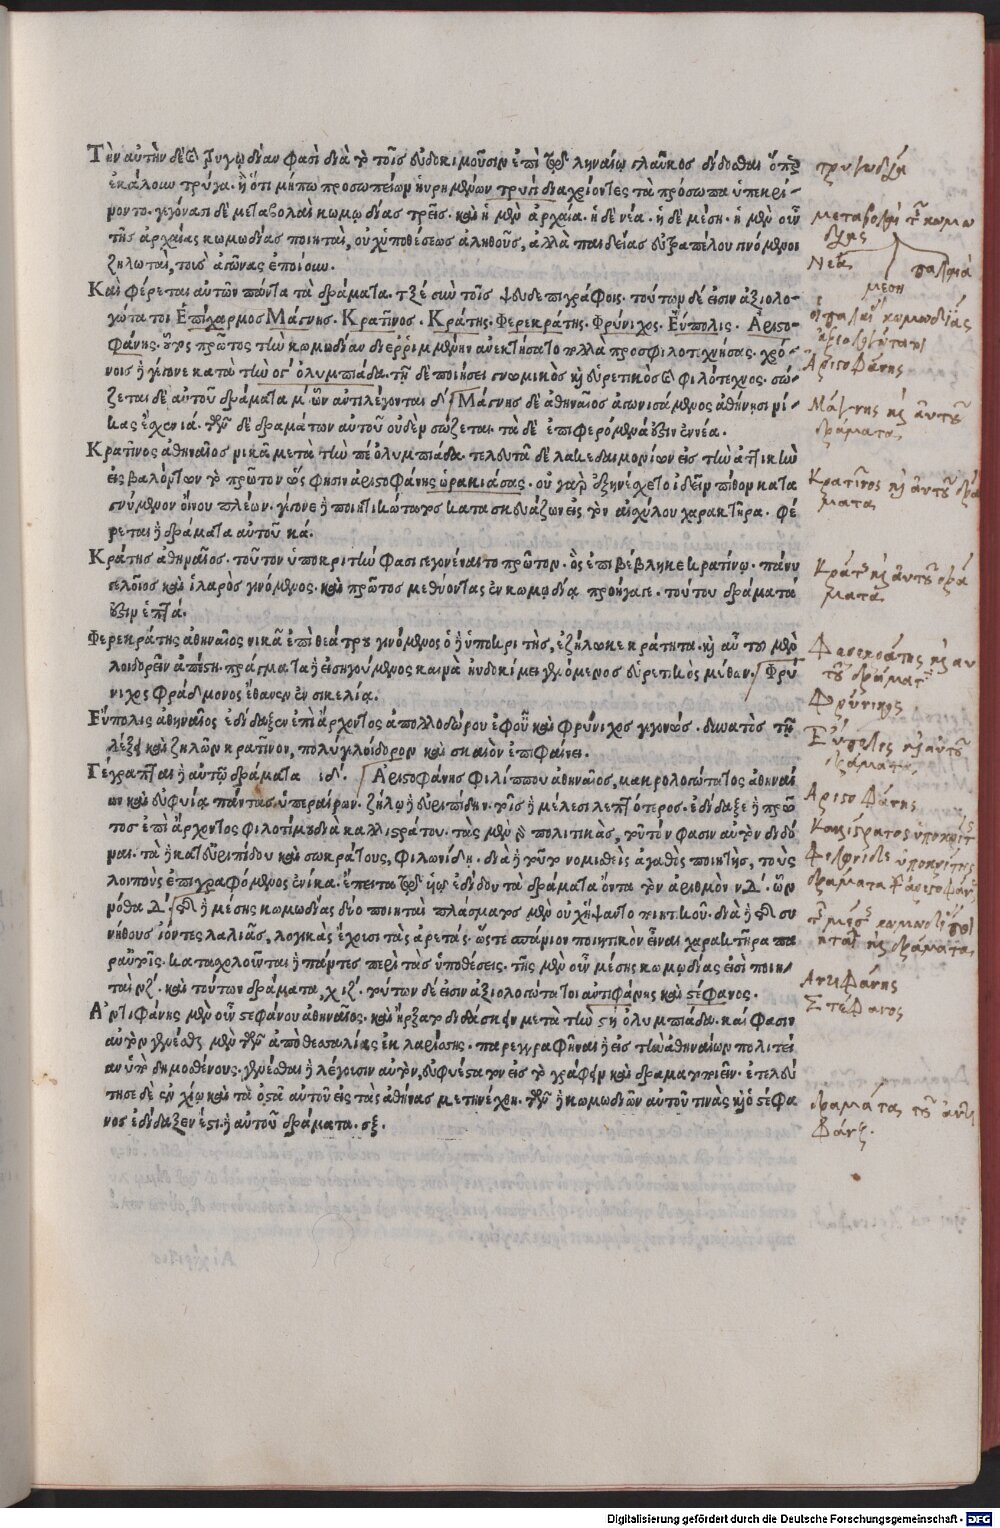 Τὴν αὐτὴν δὲ καὶ τρυγῳδίαν φασὶ διὰ τὸ τοῖς εὐδοκιμοῦσιν ἐπὶ τῷ ληναίῳ γλαῦκος δίδοσθαι ὅπερ
ἐκάλουν τρύγα. ἢ ὅτι μήπω προσωπείων ηὑρημένων τρυγὶ διαχρίοντες τὰ πρόσωπα ὑπεκρί-
νοντο. γεγόνασι δὲ μεταβολαὶ κωμῳδίας τρεῖς. καὶ ἡ μὲν ἀρχαία. ἡ δὲ νέα. ἡ δὲ μέση. ἡ μὲν οὖν
τῆς ἀρχαίας κωμωδίας ποιηταὶ, οὐχ ὑποθέσεως ἀληθοῦς, ἀλλὰ παιδείας εὐτραπέλου γινόμενοι
ζηλωταὶ, τοὺς ἀγῶνας ἐποίουν.
Καὶ φέρεται αὐτῶν πάντα τὰ δράματα. τξέ σὺν τοῖς ψευδεπιγράφοις. τούτων δέ εἰσιν ἀξιολο-
γώτατοι Ἐπίχαρμος Μάγνης. Κρατῖνος. Κράτης. Φερεκράτης. Φρύνιχος. Εὔπολις. Ἀριστο-
φάνης. ὃς πρῶτος τὴν κωμωδίαν διερριμμένην ἀνεκτήσατο πολλὰ προσφιλοτεχνήσας. χρό-
νοις ἢ γέγονε κατὰ τὴν ογ΄ ὀλυμπιάδα. τῇ δὲ ποιήσει γνωμικὸς καὶ εὑρετικὸς καὶ φιλότεχνος. σώ-
ζεται δὲ αὐτοῦ δράματα μ΄ ὧν ἀντιλέγονται δ΄ Μάγνης δὲ ἀθηναῖος ἀγωνισάμενος ἀθήνησι νί-
κας ἔσχεν ιά. τῶν δὲ δραμάτων αὐτοῦ οὐδὲν σώζεται. τὰ δὲ ἐπιφερόμενά ἐστιν ἐννέα.
Κρατῖνος ἀθηναῖος νικᾶ μετὰ τὴν πέ ὀλυμπιάδα. τελευτᾶ δὲ λακεδαιμονίων εἰς τὴν ἀττικὴν
εἰσβαλόντων τὸ πρῶτον ὥς φησιν ἀριστοφάνης ὡρακιάσας. οὐ γὰρ ἐξηνέχετο ἰδεῖν πίθον κατα
γνύμενον οἴνου πλέων. γέγονε ἢ ποιητικώτατος κατασκευάζων εἰς τὸν αἰσχύλου χαρακτῆρα. φέ
ρεται ἢ δράματα αὐτοῦ κά.
Κράτης ἀθηναῖος. τοῦτον ὑποκριτὴν φασι γεγονέναι το πρῶτον. ὃς ἐπιβέβληκε κρατίνῳ. πάνυ
γελοῖος καὶ ἱλαρὸς γινόμενος. καὶ πρῶτος μεθύοντας ἐν κωμῳδίᾳ προήγαγε. τούτου δράματά
ἐστιν ἑπτά.
Φερεκράτης ἀθηναῖος νικᾶ ἐπὶ θεάτρου γινόμενος ὁ ἢ ὑποκριτὴς, ἐζήλωκε κράτητα. καὶ αὖ του μὲν
λοιδορεῖν ἀπέστη. πράγματα ἢ εἰσηγούμενος καινὰ ηὐδοκίμει γενόμενος εὑρετικὸς μύθων. Φρύ
νιχος φράδμονος ἔθανεν ἐν σικελίᾳ.
Εὔπολις ἀθηναῖος ἐδίδαξεν ἐπὶ ἄρχοντος ἀπολλοδώρου ἐφ οὗ καὶ φρύνιχος γεγονὼς. δυνατὸς τῇ
λέξει καὶ ζηλῶν κρατῖνον, πολύ γε λοίδορον καὶ σκαιὸν ἐπιφαίνει.
Γέγραπται ἢ αὐτῷ δράματα ιδ΄. Ἀριστοφάνης Φιλίππου ἀθηναῖος, μακρολογώτατος ἀθηναί
ων καὶ εὐφυίᾳ πάντας ὑπεραίρων. ζήλῳ ἢ εὐριπίδην. τοῖς ἢ μέλεσι λεπτότερος. ἐδίδαξε ἢ πρῶ
τος ἐπὶ ἄρχοντος φιλοτίμου διὰ καλλιστράτου. τὰς μὲν γὰρ πολιτικὰς, τούτον φασιν αὐτὸν διδό
ναι. τὰ ἢ κατ εὐριπίδου καὶ σωκράτους, φιλωνίδῃ. διὰ ἢ τοῦτον νομισθεὶς ἀγαθὸς ποιητὴς, τοὺς
λοιποὺς ἐπιγραφόμενος ἐνίκα. ἔπειτα τῷ υἱῷ ἐδίδου τὰ δράματα ὄντα τὸν ἀριθμὸν νδ΄. ὧν
νόθα δ΄ τῆς ἢ μέσης κωμωδίας δὲ οἱ ποιηταὶ πλάσματος μὲν οὐχ ἥψαντο ποιητικοῦ. διὰ ἢ τῆς συ
νήθους ἰόντες λαλιᾶς, λογικὰς ἔχουσι τὰς ἀρετάς. ὥστε σπάνιον ποιητικὸν εἶναι χαρακτῆρα πα
ρ αὐτοῖς. κατασχολοῦνται ἢ πάντες περὶ τὰς ὑποθέσεις. τῆς μὲν οὖν μέσης κωμῳδίας εἰσὶ ποιη-
ταὶ νζ΄. καὶ τούτων δράματα, χιζ΄. τούτων δέ εἰσιν ἀξιολογώτατοι ἀντιφάνης καὶ στέφανος.
Ἀντιφάνης μὲν οὖν στεφάνου ἀθηναῖος. καὶ ἤρξατο διδάσκειν μετὰ τὴν ϟη ὀλυμπιάδα. καί φασιν
αὐτὸν γενέσθαι μὲν τῶν ἀπὸ θεσσαλίας ἐκ λαρίσσης. παρεγγραφῆναι ἢ εἰς τὴν ἀθηναίων πολιτεί
αν ὑπὸ δημοσθένους. γενέσθαι ἢ λέγουσιν αὐτὸν, εὐφυέστατον εἰς τὸ γράφειν καὶ δραματοποιεῖν. ἐτελεύ
τησε δὲ ἐν χίῳ καὶ τὰ ὀστᾶ αὐτοῦ εἰς τὰς ἀθήνας μετηνέχθη. τῶν ἢ κωμωδιῶν αὐτοῦ τινὰς καὶ ὁ στέφα
νος ἐδίδαξεν ἔστι. ἢ αὐτοῦ δράματα. σξ.
τρυγωδία
μεταβολαὶ τῆς κωμω
δίας
Νέα
παλαιὰ
μέση
οἱ παλαιᾶς κωμωδίας
ἀξιολογώτατοι
Ἀριστοφάνης
Μάγνης καὶ αὐτοῦ
δράματα
Κρατῖνος καὶ αὐτοῦ δρά
ματα
Κράτης καὶ αὐτοῦ δρά
ματα
Φερεκράτης καὶ αυ
τοῦ δράματα
Φρύνιχος
Εὔπολις καὶ αὐτοῦ
δράματα
Αριστοφάνης
Καλλίστρατος ὑποκριτής
Φιλωνίδης ὑποκριτής
δράματα Ἀριστοφάνους
τῆς μέσης κωμωδίας ποι
ηταὶ καὶ δράματα
Αντιφάνης
Στέφανος
δράματα τοῦ ἀντι
φάνους.
Digitalisierung gefördert durch die Deutsche Forschungsgemeinschaft - DFG